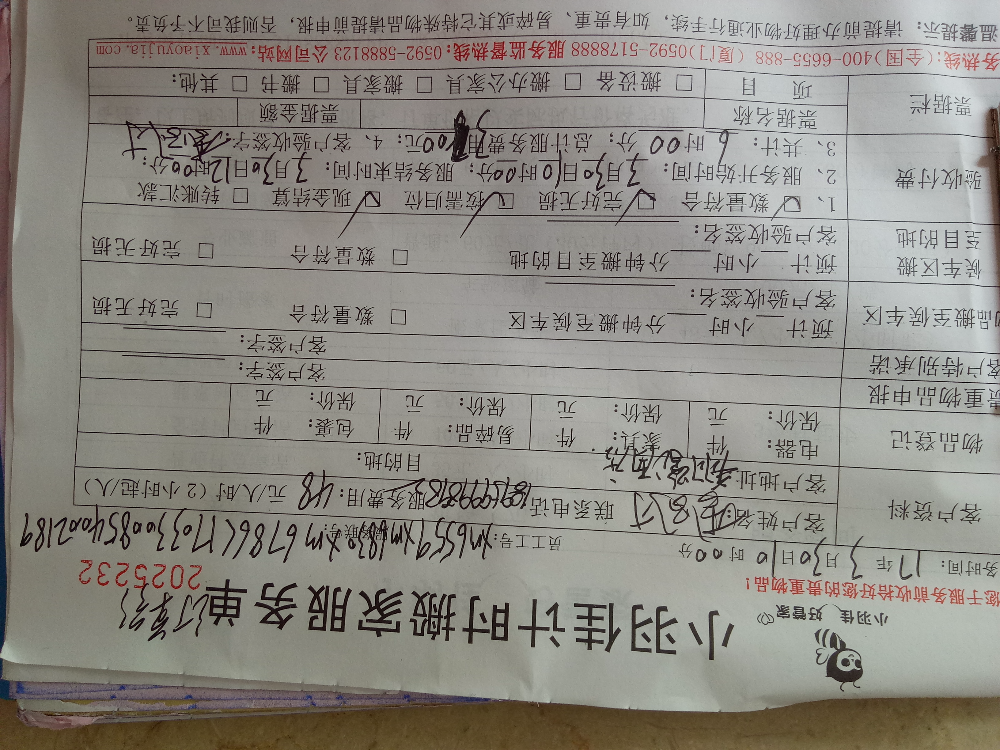 小羽佳 好管家
小羽佳计时搬家服务单
2025232
您于服务前收拾好您的贵重物品!
务时间: 17年 3月30日10时00分
员工工号:
客户资料
客户姓名: 联系电话: 服务费用: 48 元/人/时 (2小时起)
客户地址: 目的地:
物品登记
电器: 件 家具: 件 易碎品: 件 包裹: 件
保价: 元 保价: 元 保价: 元 保价: 元
贵重物品申报
客户签字:
客户特别承诺
客户签字:
品搬至候车区
预计 小时 分钟搬至候车区 □ 数量符合 □ 完好无损
客户验收签名:
候车区搬至目的地
预计 小时 分钟搬至目的地 □ 数量符合 □ 完好无损
客户验收签名:
验收付费
1、☑ 数量符合 ☑ 完好无损 ☑ 按需归位 ☑ 现金结算 □ 转账汇款
2、服务开始时间: 3月30日10时00分; 服务结束时间: 3月30日12时00分;
3、共计: 6 时 00 分; 总计服务费用 元; 4、客户验收签字:
票据栏
票据名称 票据金额
项目 □ 搬设备 □ 搬办公家具 □ 搬家具 □ 搬书 □ 其他:
务热线:(全国)400-6655-888 (厦门)0592-5178888 服务监督热线:0592-5888123 公司网站:www.xiaoyujia.com
温馨提示: 请提前办理好物业通行手续, 如有贵重、易碎或其它特殊物品请提前申报, 否则我司不予负责。